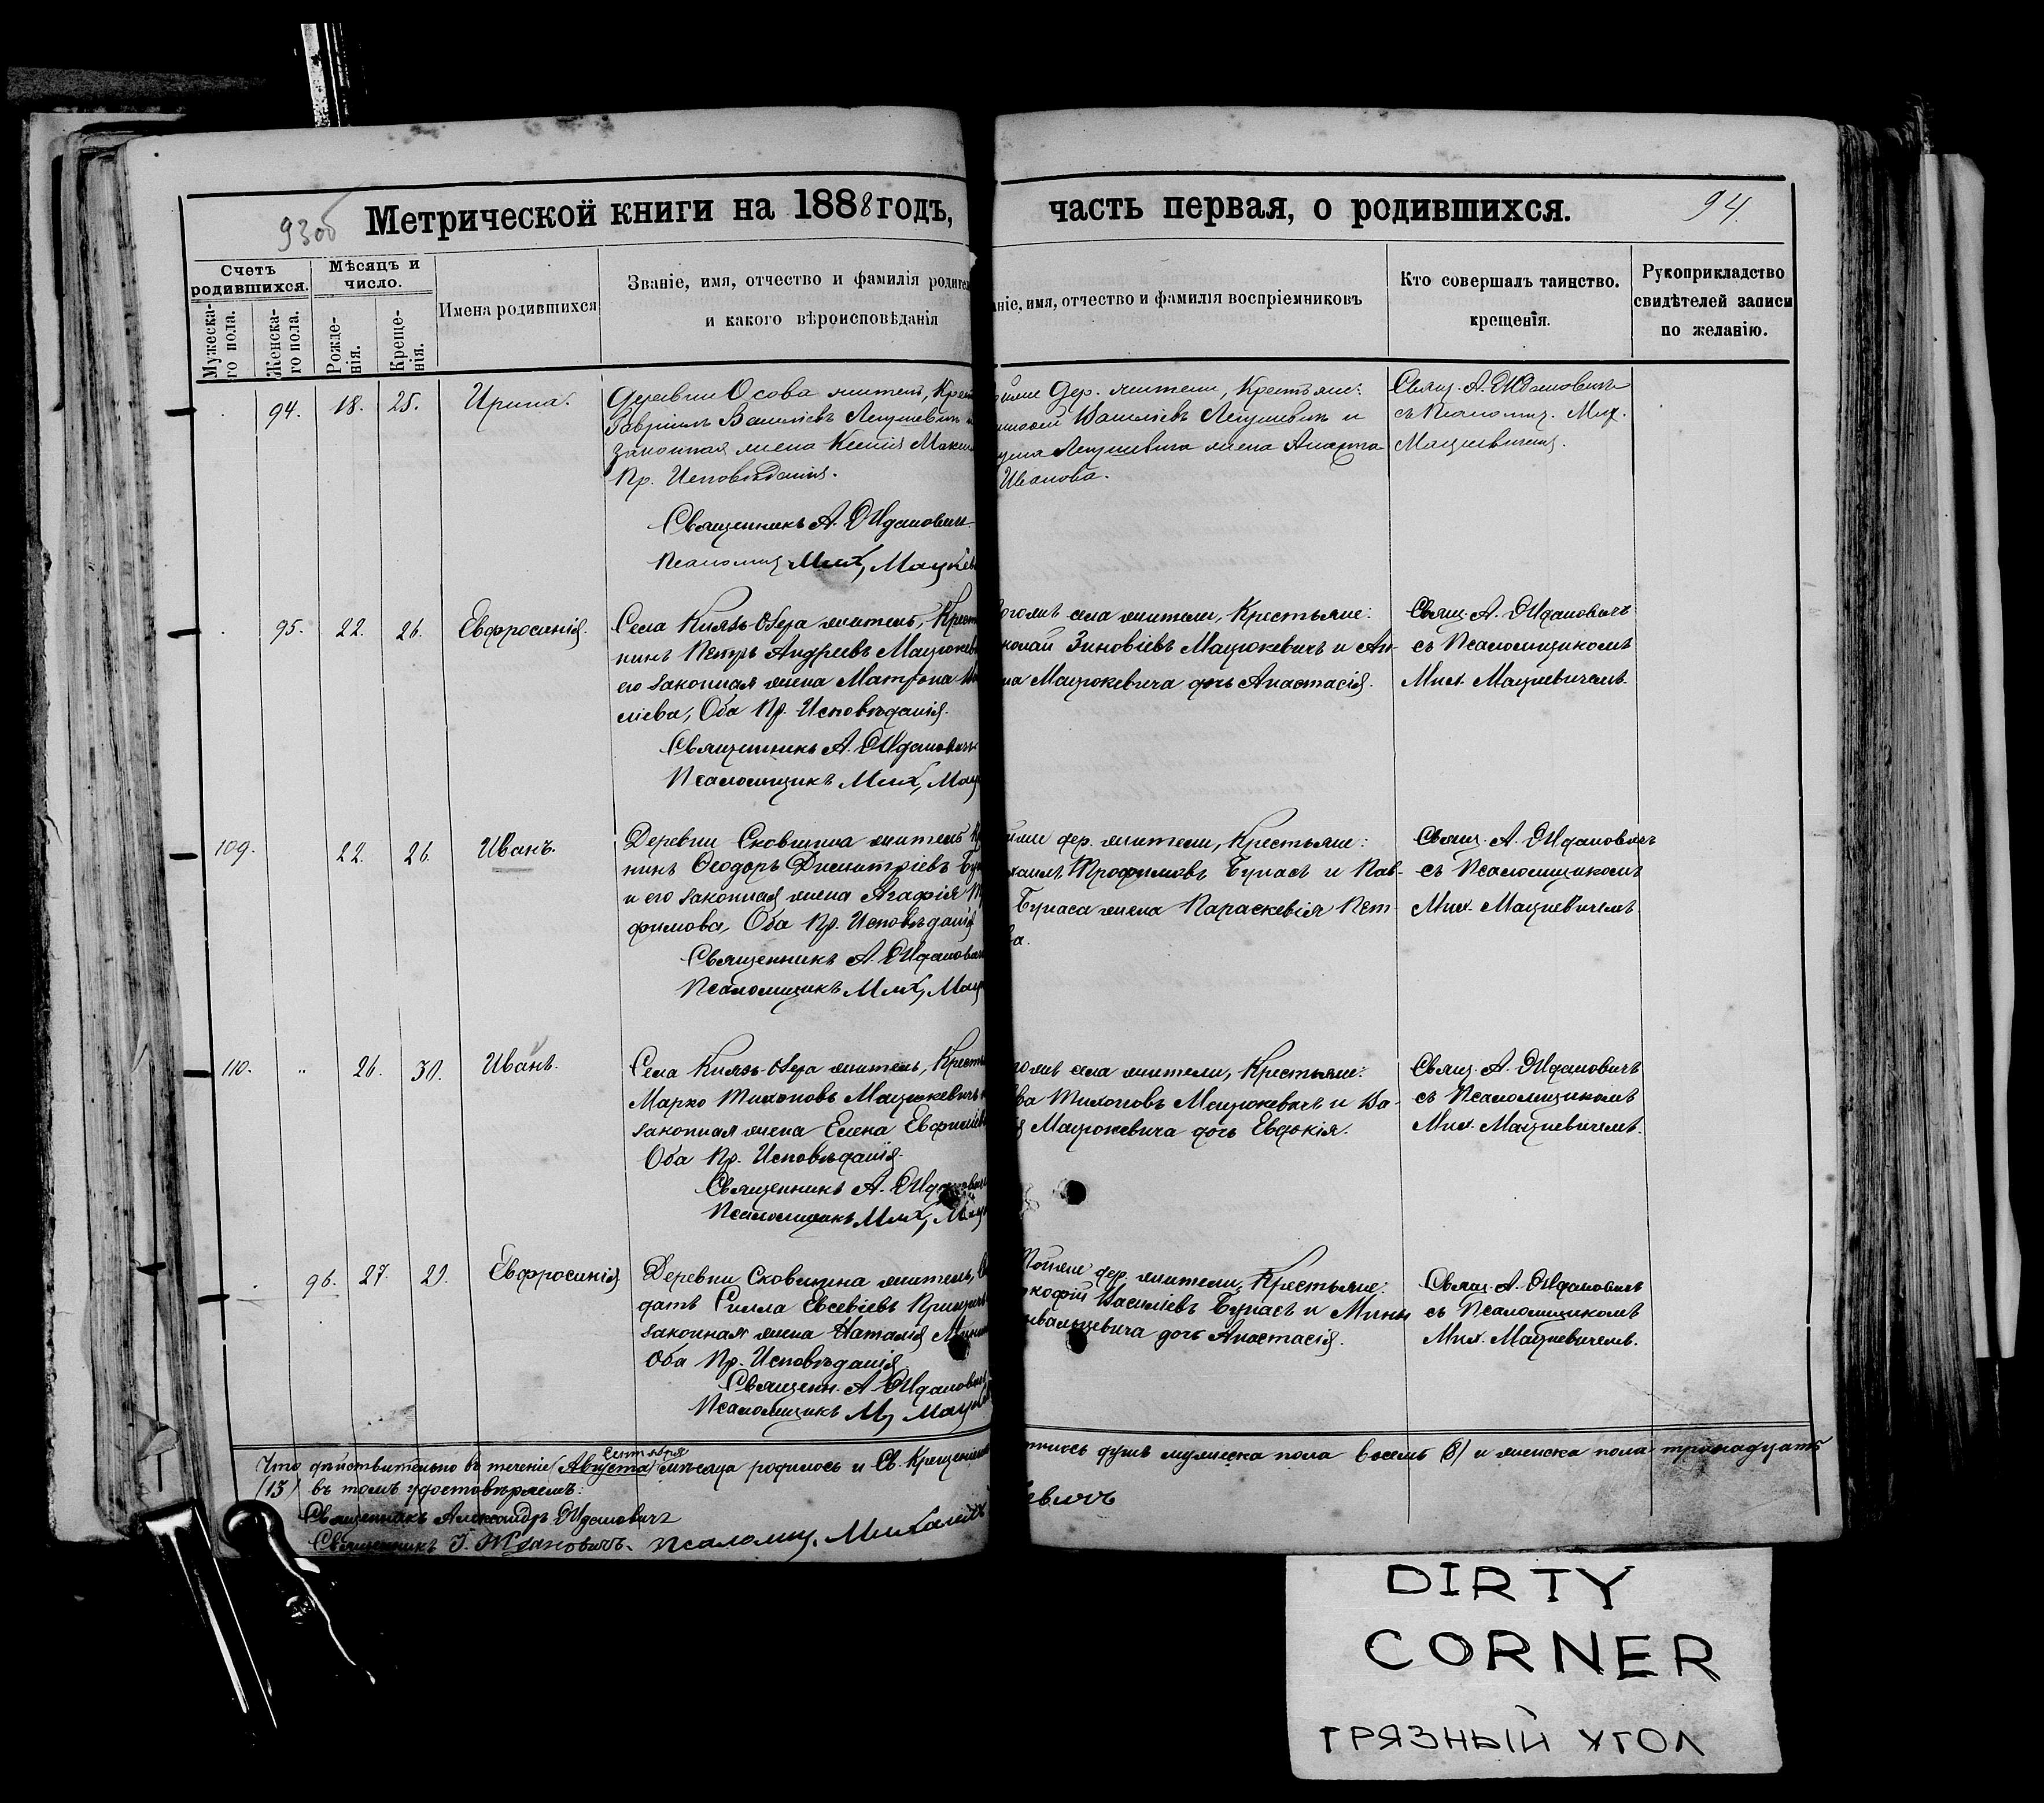 93об
Метрической книги на 1888 годъ,
часть первая, о родившихся.
94.
Счетъ родившихся.
Мужеска-го пола.
Женска-го пола.
Мѣсяцъ и число.
Рожде-нія.
Креще-нія.
Имена родившихся
Званіе, имя, отчество и фамилія родител
и какого вѣроисповѣданія
ніе, имя, отчество и фамилія воспріемниковъ
Кто совершалъ таинство.
крещенія.
Рукоприкладство
свидѣтелей записи
по желанію.
94. 18. 25. Ирина.
Деревни Осова житель, Крест
Гавріилъ Васильевъ
законная жена Ксенія Макси
Пр. Исповѣданія.
Священникъ А. Ждановичъ
Псаломщ Мих, Мацкев
дер. жители, Крестьяне:
Васильевъ и
жена Анаста
Иванова.
Свящ. А. Ждановичъ
съ Псаломщ. Мих.
Мацкевичемъ.
95. 22. 26. Евфросинія.
Села Князь-Озера житель, Крест
нинъ Петръ Андреевъ Мацюкев
его законная жена Матрона
сіева, Оба Пр. Исповѣданія.
Священникъ А. Ждановичъ
Псаломщикъ Мих, Мац
тогожъ села жители, Крестьяне:
колай Зиновіевъ Мацюкевичъ и Ан-
на Мацюкевича дочь Анастасія.
Свящ. А. Ждановичъ
съ Псаломщикомъ
Мих. Мацкевичемъ.
109. 22. 26. Иванъ.
Деревни Сковшина житель Кр
нинъ Ѳеодоръ Димитріевъ Бу
и его законная жена Агафія Тр
фимова, Оба Пр. Исповѣданія
Священникъ А. Ждановичъ
Псаломщикъ Мих, Мац
дер. жители, Крестьяне:
хаилъ Трофимовъ Бурасъ и Пав-
Бураса жена Параскевія Пет-
ва.
Свящ. А. Ждановичъ
съ Псаломщикомъ
Мих. Мацкевичемъ.
110. " 26. 30. Иванъ.
Села Князь-Озера житель, Крест
Марко Тихоновъ Мацюкевичъ и
законная жена Елена Евфиміев
Оба Пр. Исповѣданія.
Священникъ А. Жданович
Псаломщикъ Мих, Мац
гожъ села жители, Крестьяне:
ва Тихоновъ Мацюкевичъ и Ва-
я Мацюкевича дочь Евдокія.
Свящ. А. Ждановичъ
съ Псаломщикомъ
Мих. Мацкевичемъ.
96. 27. 29. Евфросинія
Деревни Сковшина житель, Со
датъ Сиила Евсевіевъ
законная жена Наталія
Оба Пр. Исповѣданія
Священн. А. Жданович
Псаломщикъ М, Мацк
Тойже дер. жители, Крестьяне:
кофій Василіевъ Бурасъ и Мины
дочь Анастасія.
Свящ. А. Ждановичъ
съ Псаломщикомъ
Мих. Мацкевичемъ.
Сентября
Что дѣйствительно въ теченіе (Августа) мѣсяца родилось и Св. Крещеніем
душъ мужеска пола восемь (8) и женска пола тринадцать
(13) въ томъ удостовѣряемъ:
Священникъ Александръ Ждановичъ
Священникъ І. Ждановичъ. псаломщ. Михаилъ
евичъ
DIRTY
CORNER
ГРЯЗНЫЙ УГОЛ